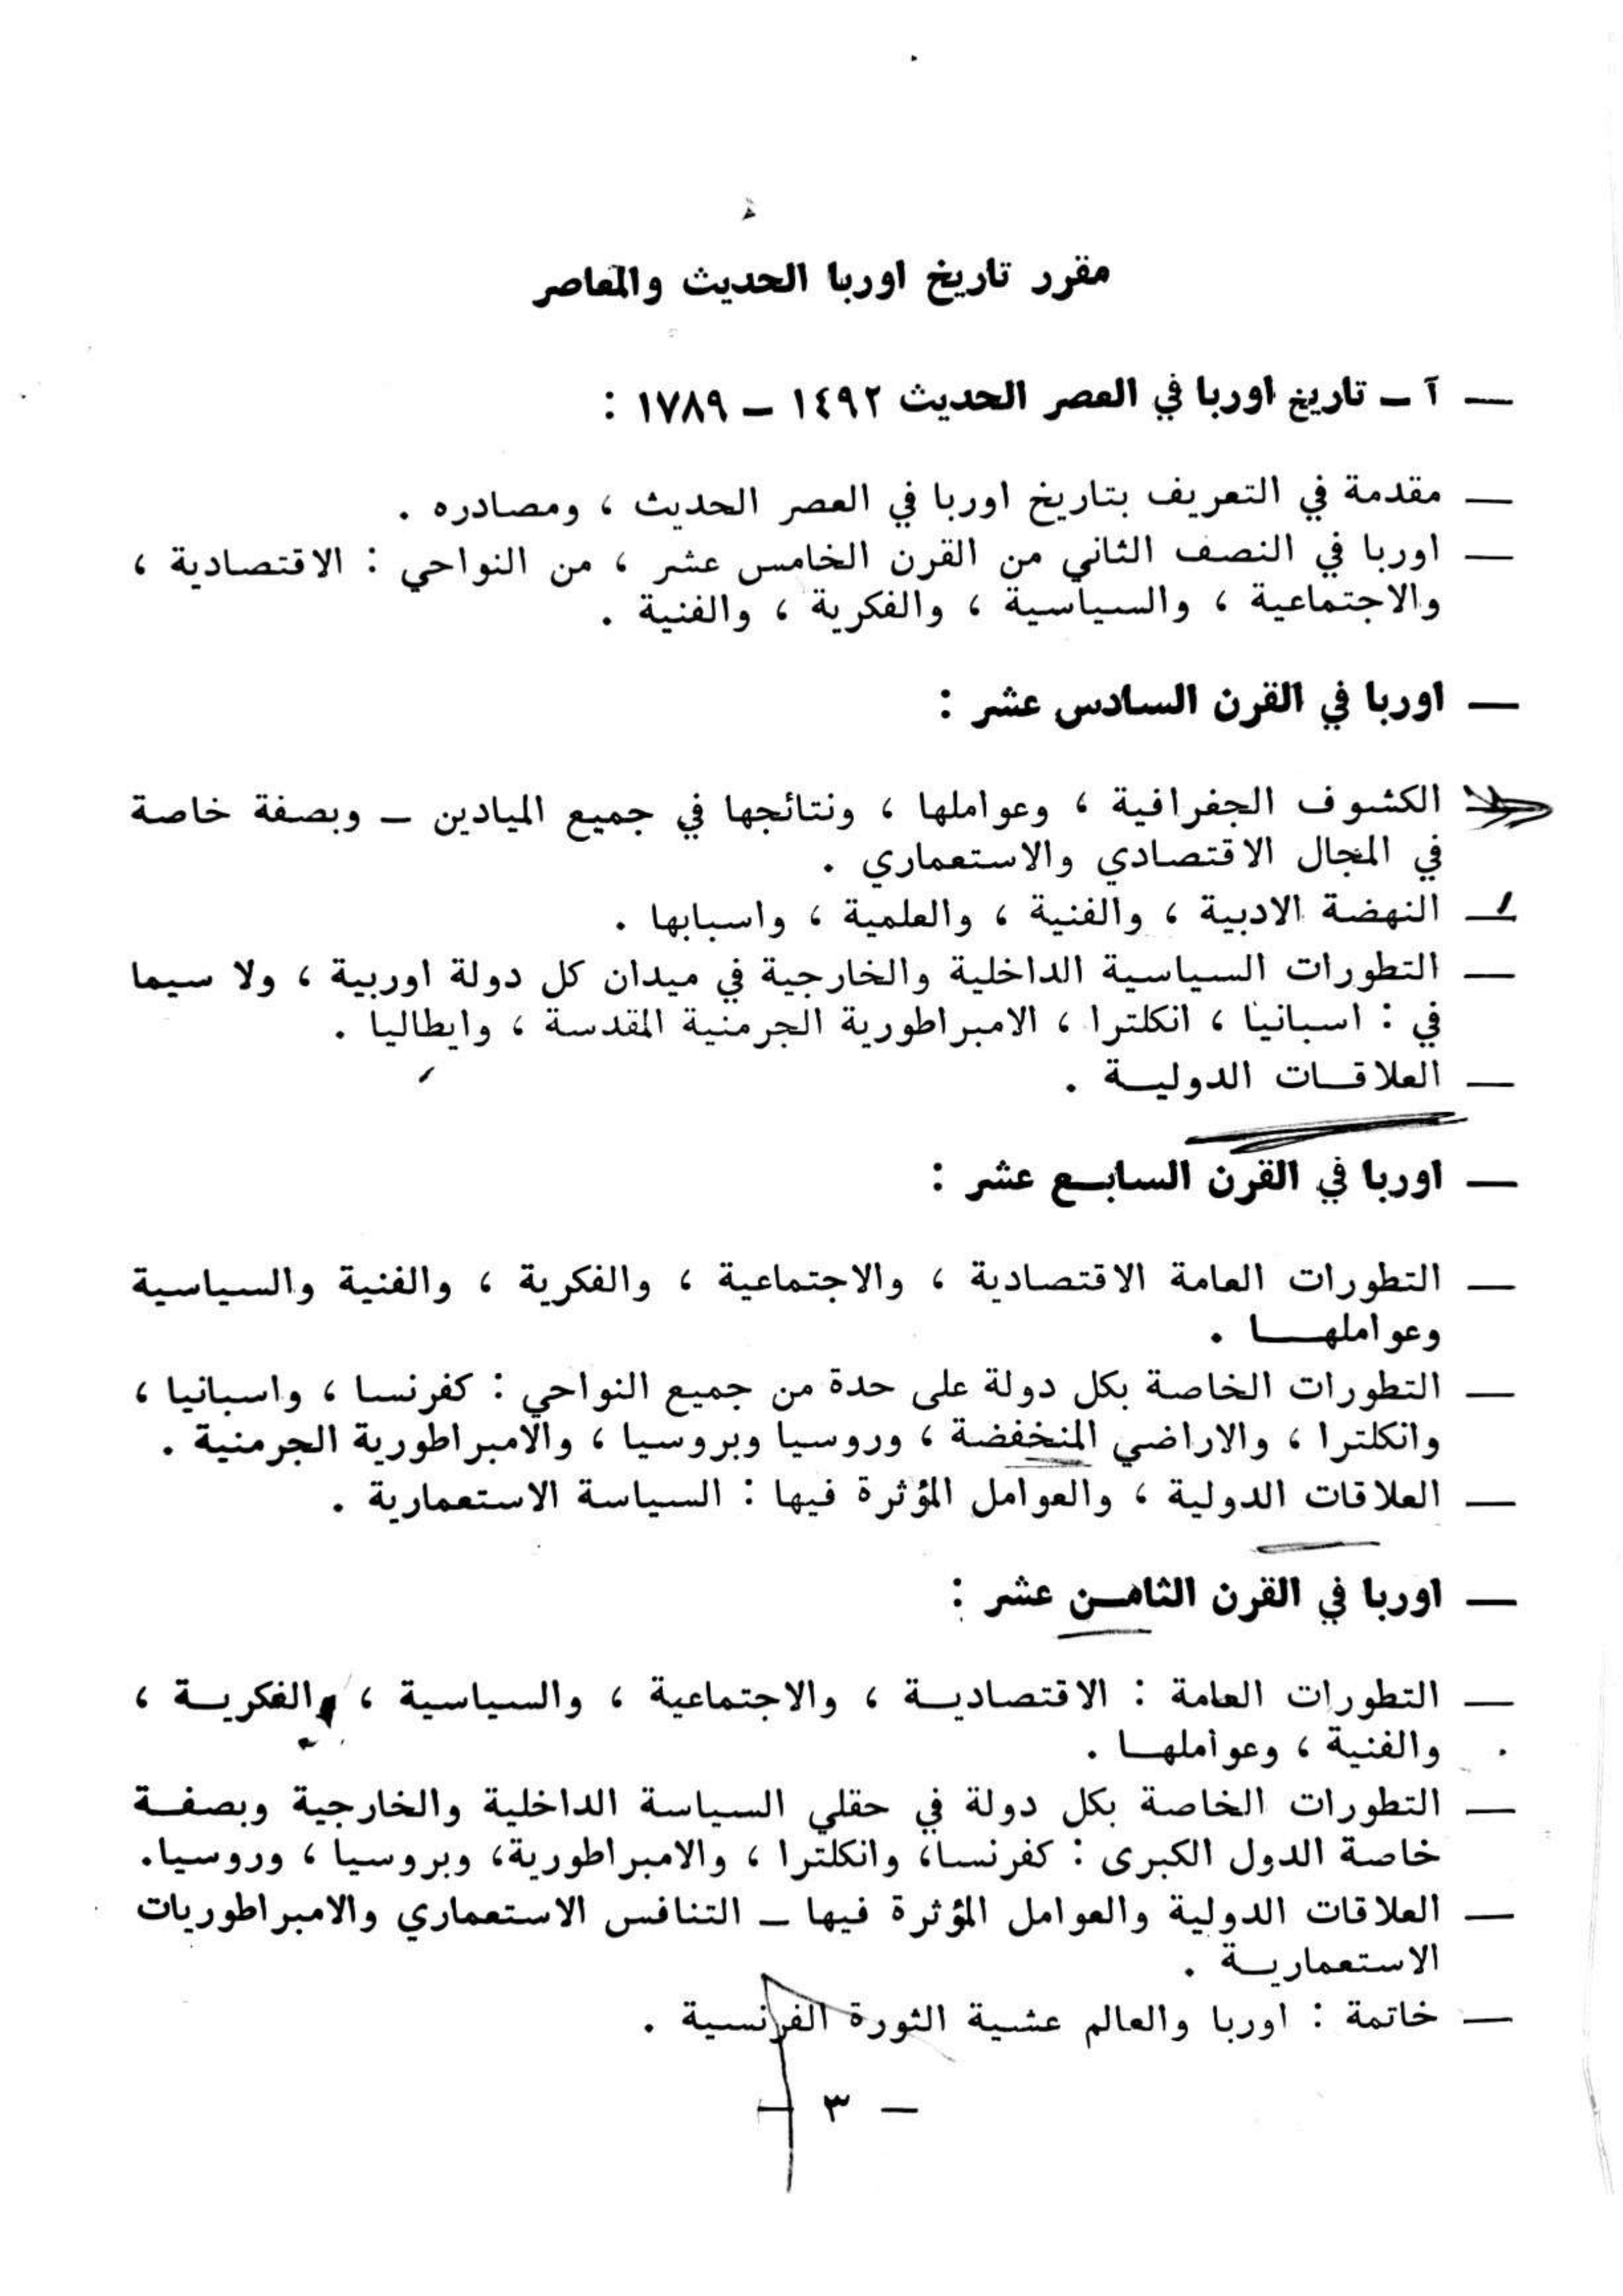 مقرر تاريخ اوربا الحديث والمعاصر
— آ ـ تاريخ اوربا في العصر الحديث ١٤٩٢ ـ ١٧٨٩ :
— مقدمة في التعريف بتاريخ اوربا في العصر الحديث ، ومصادره .
— اوربا في النصف الثاني من القرن الخامس عشر ، من النواحي : الاقتصادية ،
والاجتماعية ، والسياسية ، والفكرية ، والفنية .
— اوربا في القرن السادس عشر :
— الكشوف الجغرافية ، وعواملها ، ونتائجها في جميع الميادين ـ وبصفة خاصة
في المجال الاقتصادي والاستعماري .
— النهضة الادبية ، والفنية ، والعلمية ، واسبابها .
— التطورات السياسية الداخلية والخارجية في ميدان كل دولة اوربية ، ولا سيما
في : اسبانيا ، انكلترا ، الامبراطورية الجرمنية المقدسة ، وايطاليا .
— العلاقات الدولية .
— اوربا في القرن السابع عشر :
— التطورات العامة الاقتصادية ، والاجتماعية ، والفكرية ، والفنية والسياسية
وعواملها .
— التطورات الخاصة بكل دولة على حدة من جميع النواحي : كفرنسا ، واسبانيا ،
وانكلترا ، والاراضي المنخفضة ، وروسيا وبروسيا ، والامبراطورية الجرمنية .
— العلاقات الدولية ، والعوامل المؤثرة فيها : السياسة الاستعمارية .
— اوربا في القرن الثامن عشر :
— التطورات العامة : الاقتصادية ، والاجتماعية ، والسياسية ، والفكرية ،
والفنية ، وعواملها .
— التطورات الخاصة بكل دولة في حقلي السياسة الداخلية والخارجية وبصفة
خاصة الدول الكبرى : كفرنسا، وانكلترا ، والامبراطورية، وبروسيا ، وروسيا.
— العلاقات الدولية والعوامل المؤثرة فيها ـ التنافس الاستعماري والامبراطوريات
الاستعمارية .
— خاتمة : اوربا والعالم عشية الثورة الفرنسية .
— ٣ —